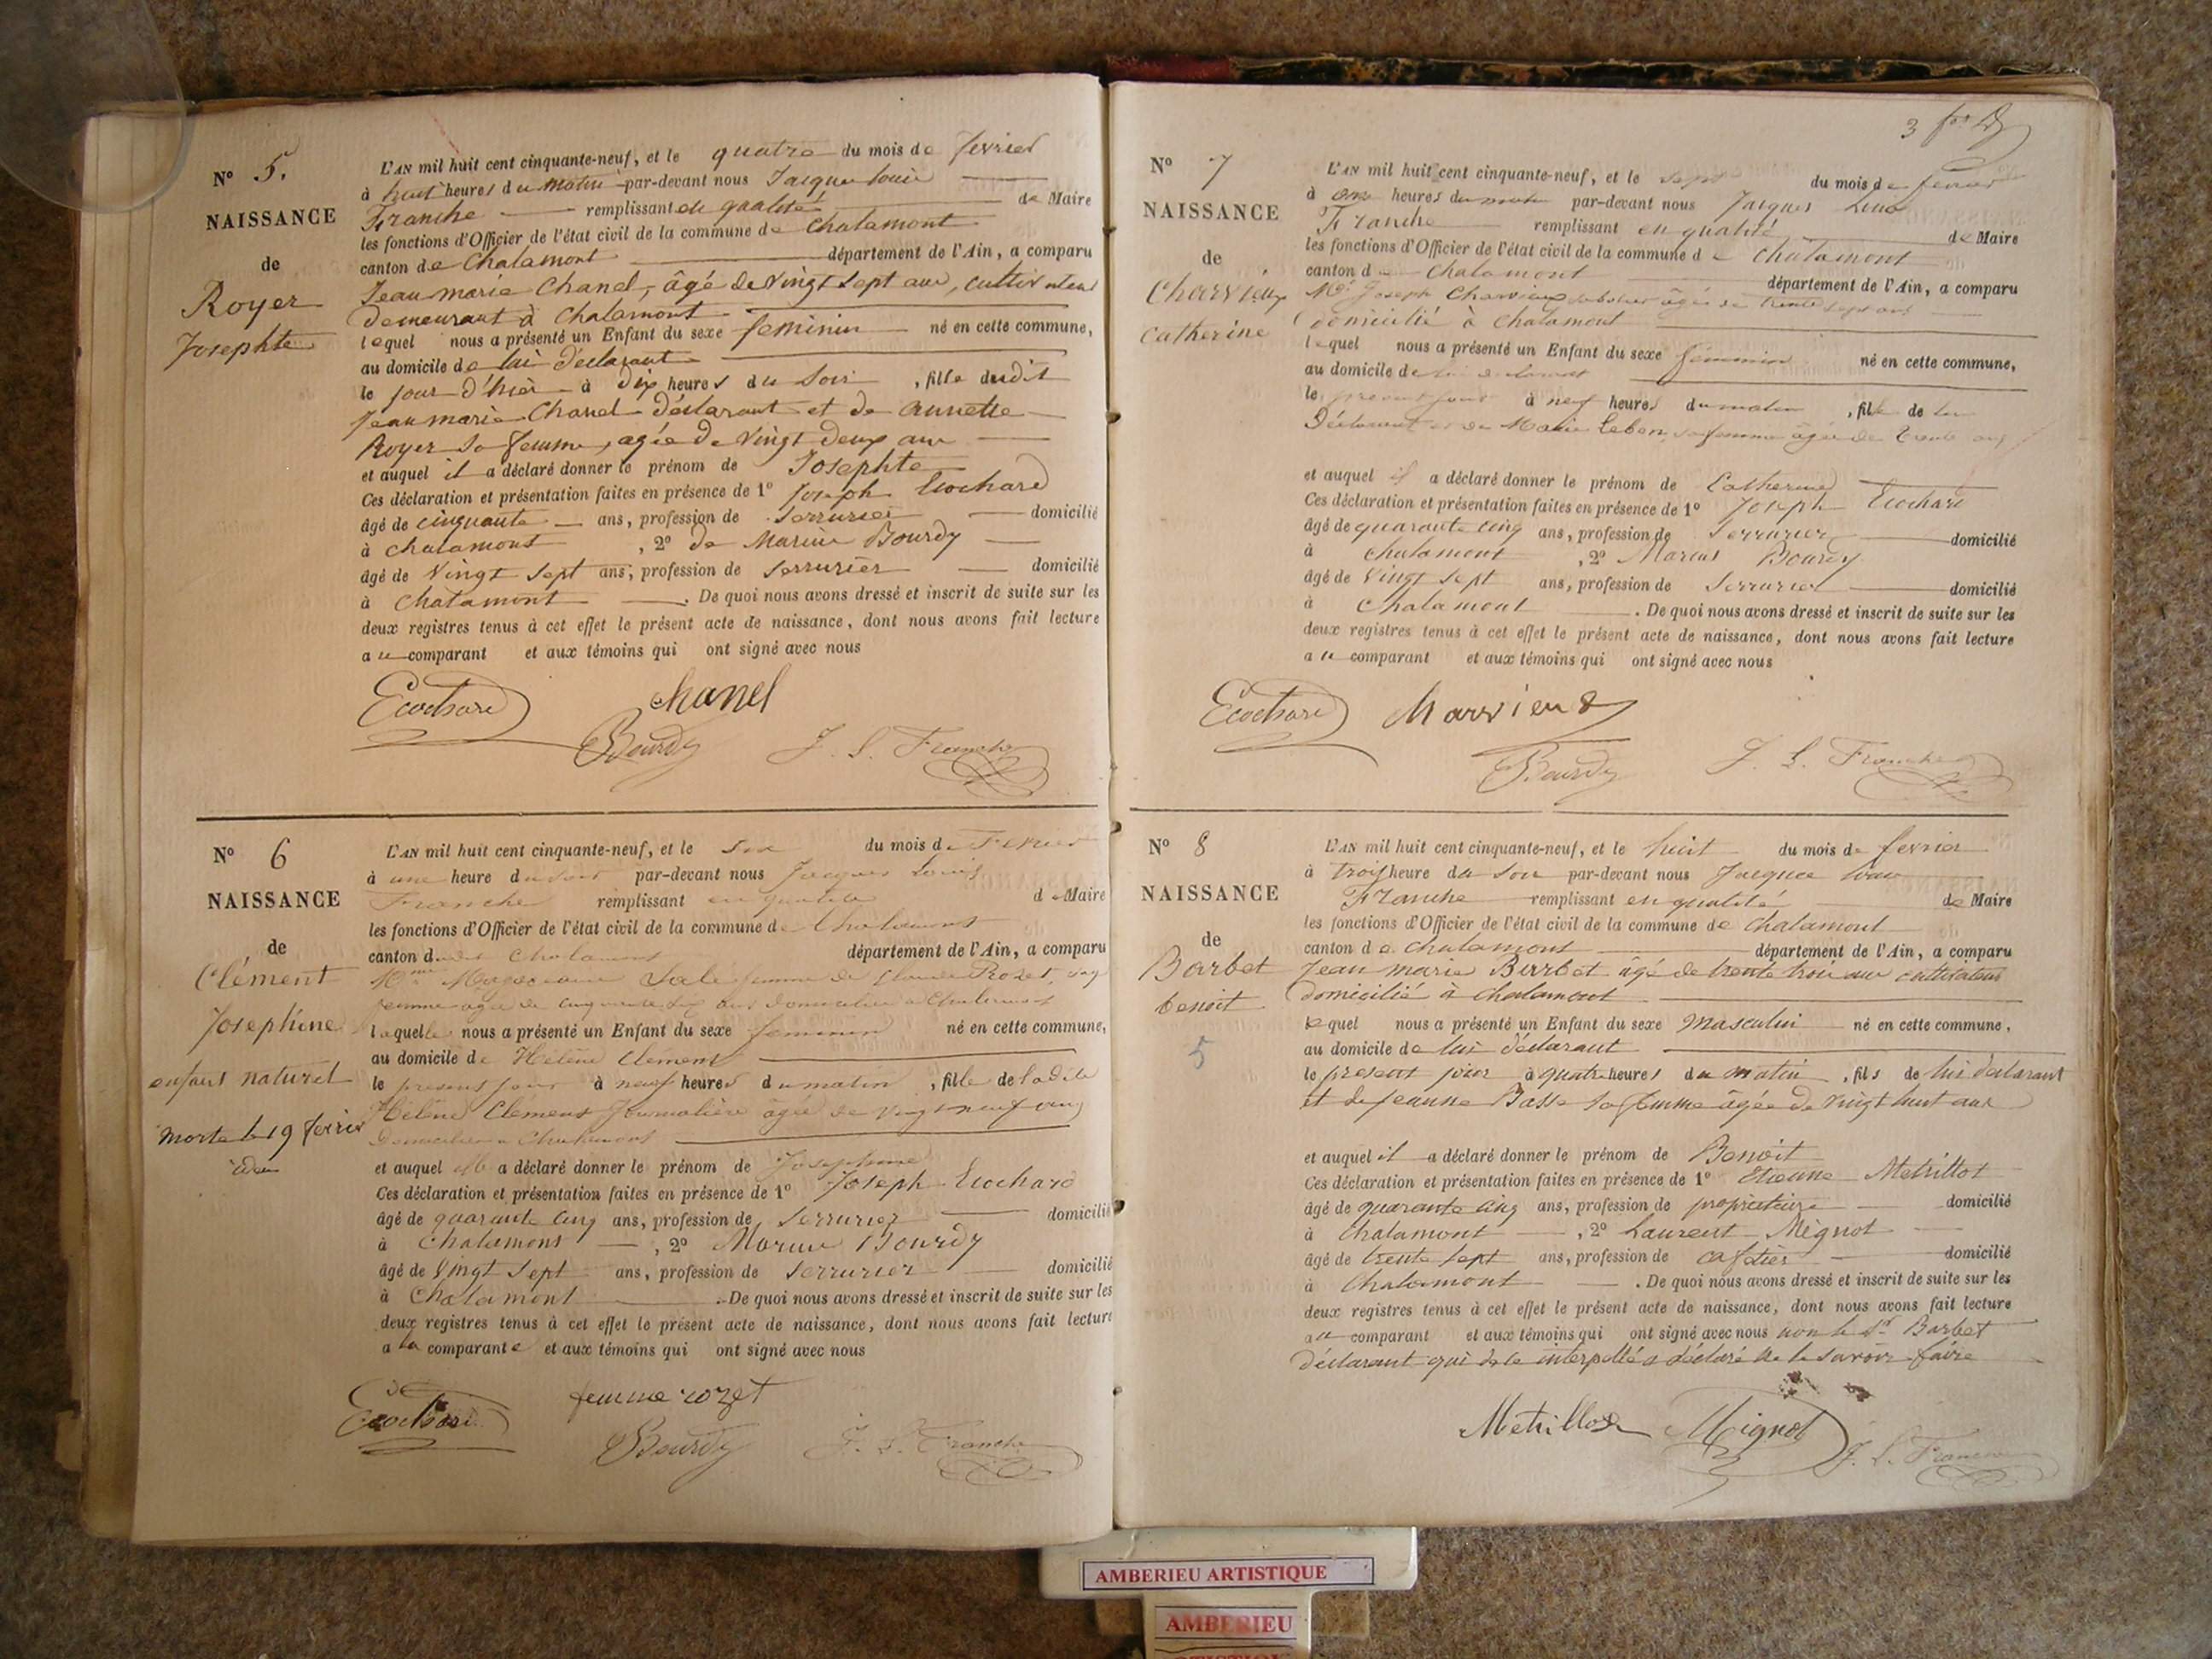 N° 5.
NAISSANCE
de
Royer
Josephte
L'AN mil huit cent cinquante-neuf, et le quatre du mois de fevrier
à huit heures du matin par-devant nous Jacques Louis
Franche remplissant en qualité de Maire
les fonctions d'Officier de l'état civil de la commune de Chalamont
canton de Chalamont département de l'Ain, a comparu
Jean marie Chanel, âgé de vingt sept ans, cultivateur
demeurant à Chalamont
lequel nous a présenté un Enfant du sexe feminin né en cette commune,
au domicile de lui déclarant
le jour d'hier à dix heures du soir, fille dudit
Jean marie Chanel déclarant et de annette
Royer sa femme, agée de vingt deux ans
et auquel il a déclaré donner le prénom de Josephte
Ces déclaration et présentation faites en présence de 1° Joseph Ecochard
âgé de cinquante ans, profession de Serrurier domicilié
à chalamont, 2° de Marius Bourdy
âgé de vingt sept ans, profession de serrurier domicilié
à chalamont. De quoi nous avons dressé et inscrit de suite sur les
deux registres tenus à cet effet le présent acte de naissance, dont nous avons fait lecture
au comparant et aux témoins qui ont signé avec nous
Ecochard chanel
Bourdy J. L. Franche
N° 6
NAISSANCE
de
Clément
Josephine
enfant naturel
morte le 19 fevrier
L'AN mil huit cent cinquante-neuf, et le six du mois de Fevrier
à une heure du soir par-devant nous Jacques Louis
Franche remplissant en qualité de Maire
les fonctions d'Officier de l'état civil de la commune de Chalamont
canton dudit Chalamont département de l'Ain, a comparu
femme de Claude Rozet, sage
femme agée de cinquante six ans domiciliée à Chalamont
laquelle nous a présenté un Enfant du sexe feminin né en cette commune,
au domicile de Hélène Clement
le present jour à neuf heures du matin, fille de ladite
Hélène Clément Journalière âgée de vingt neuf ans
Domiciliée à Chalamont
et auquel elle a déclaré donner le prénom de Josephine
Ces déclaration et présentation faites en présence de 1° Joseph Ecochard
âgé de quarante cinq ans, profession de serrurier domicilié
à Chalamont, 2° Marius Bourdy
âgé de vingt sept ans, profession de serrurier domicilié
à Chalamont. De quoi nous avons dressé et inscrit de suite sur les
deux registres tenus à cet effet le présent acte de naissance, dont nous avons fait lecture
a la comparante et aux témoins qui ont signé avec nous
Ecochard femme rozet
Bourdy J. L. Franche
3
N° 7
NAISSANCE
de
Charvieux
Catherine
L'AN mil huit cent cinquante-neuf, et le sept du mois de fevrier
à onze heures du matin par-devant nous Jacques Louis
Franche remplissant en qualité de Maire
les fonctions d'Officier de l'état civil de la commune de Chalamont
canton de Chalamont département de l'Ain, a comparu
Mr Joseph Charvieux âgé de trente sept ans
domicilié à Chalamont
lequel nous a présenté un Enfant du sexe féminin né en cette commune,
au domicile de lui déclarant
le present jour à neuf heures du matin, fille de lui
Déclarant et de Marie Lebon sa femme âgée de trente ans
et auquel il a déclaré donner le prénom de Catherine
Ces déclaration et présentation faites en présence de 1° Joseph Ecochard
âgé de quarante cinq ans, profession de Serrurier domicilié
à chalamont, 2° Marius Bourdy
âgé de vingt sept ans, profession de Serrurier domicilié
à Chalamont. De quoi nous avons dressé et inscrit de suite sur les
deux registres tenus à cet effet le présent acte de naissance, dont nous avons fait lecture
au comparant et aux témoins qui ont signé avec nous
Ecochard Charvieux
Bourdy J. L. Franche
N° 8
NAISSANCE
de
Barbet
benoit
5
L'AN mil huit cent cinquante-neuf, et le huit du mois de fevrier
à trois heure du soir par-devant nous Jacques Louis
Franche remplissant en qualité de Maire
les fonctions d'Officier de l'état civil de la commune de Chalamont
canton de Chalamont département de l'Ain, a comparu
Jean marie Barbet âgé de trente trois ans cultivateur
domicilié à chalamont
lequel nous a présenté un Enfant du sexe masculin né en cette commune,
au domicile de lui déclarant
le present jour à quatre heures du matin, fils de lui déclarant
et de Jeanne Basse sa femme âgée de vingt huit ans
et auquel il a déclaré donner le prénom de Benoit
Ces déclaration et présentation faites en présence de 1° Etienne Metrillot
âgé de quarante cinq ans, profession de propriétaire domicilié
à Chalamont, 2° Laurent Mégnot
âgé de trente sept ans, profession de cafetier domicilié
à Chalamont. De quoi nous avons dressé et inscrit de suite sur les
deux registres tenus à cet effet le présent acte de naissance, dont nous avons fait lecture
au comparant et aux témoins qui ont signé avec nous non le Sr Barbet
déclarant qui de ce interpellé a déclaré ne le savoir faire
Metrillot Mignot J. L. Franche
AMBERIEU ARTISTIQUE
AMBERIEU
ARTISTIQUE